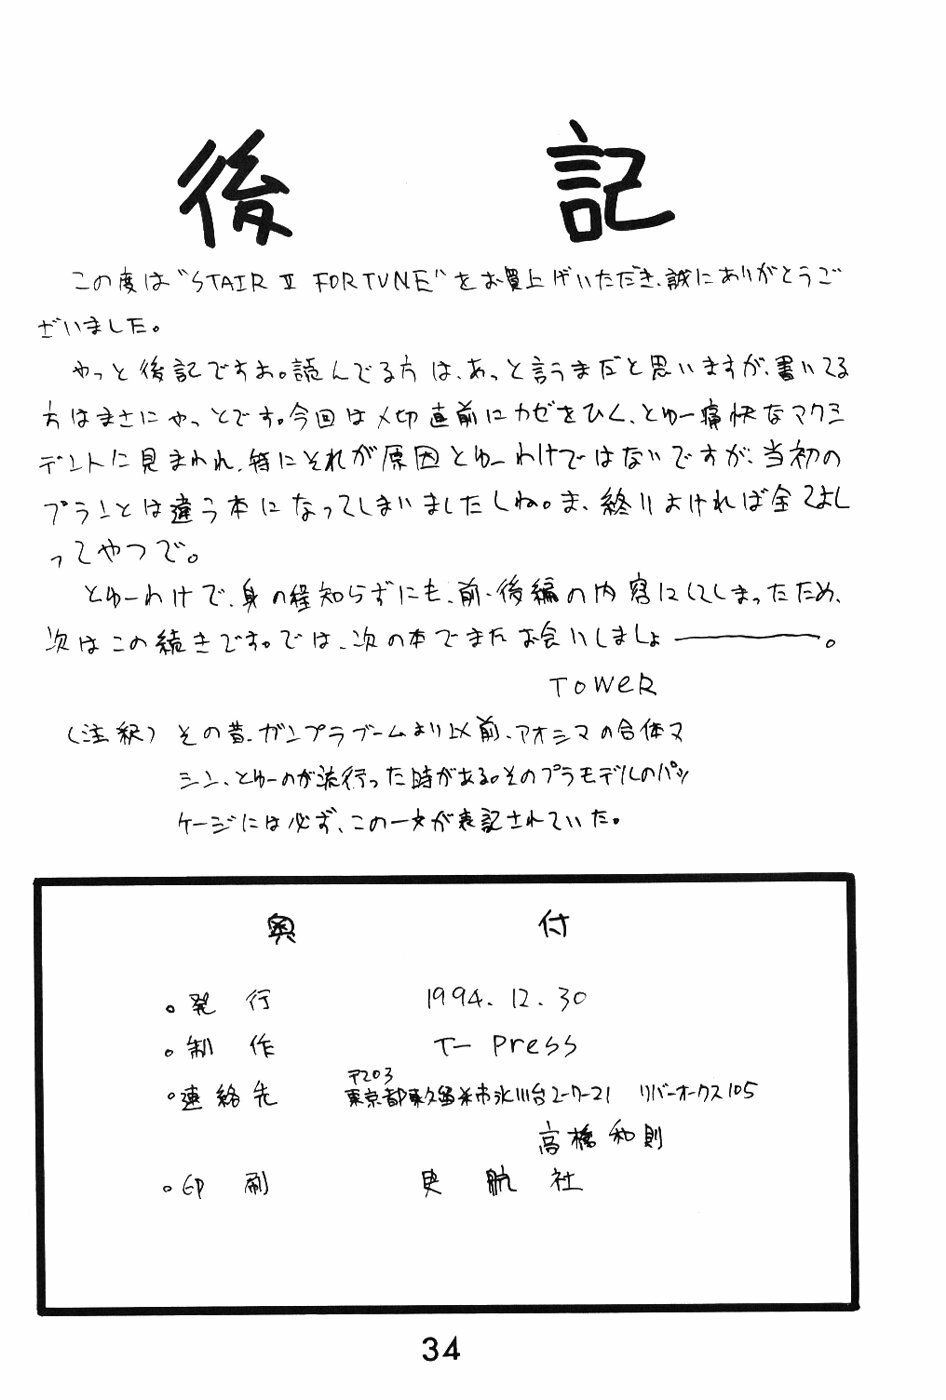 後記
この度は“STAIR Ⅱ FORTUNE”をお買上げいただき、誠にありがとうご
ざいました。
やっと後記ですよ。読んでる方は、あっと言うまだと思いますが、書いてる
方はまさにやっとです。今回は〆切直前にカゼをひく、とゆー痛快なアクシ
デントに見まわれ、特にそれが原因とゆーわけではないですが、当初の
プランとは違う本になってしまいましたしね。ま、終りよければ全てよし
ってやつで。
とゆーわけで、身の程知らずにも、前・後編の内容にしてしまったため、
次はこの続きです。では、次の本でまたお会いしましょ――――。
TOWER
(注釈) その昔、ガンプラブームより以前、アオシマの合体マ
シン、とゆーのが流行った時がある。そのプラモデルのパッ
ケージには必ず、この一文が表記されていた。
奥付
・発行 1994.12.30
・制作 T-Press
・連絡先 〒203
東京都東久留米市氷川台2-7-21 リバーオークス105
高橋和則
・印刷 史航社
34